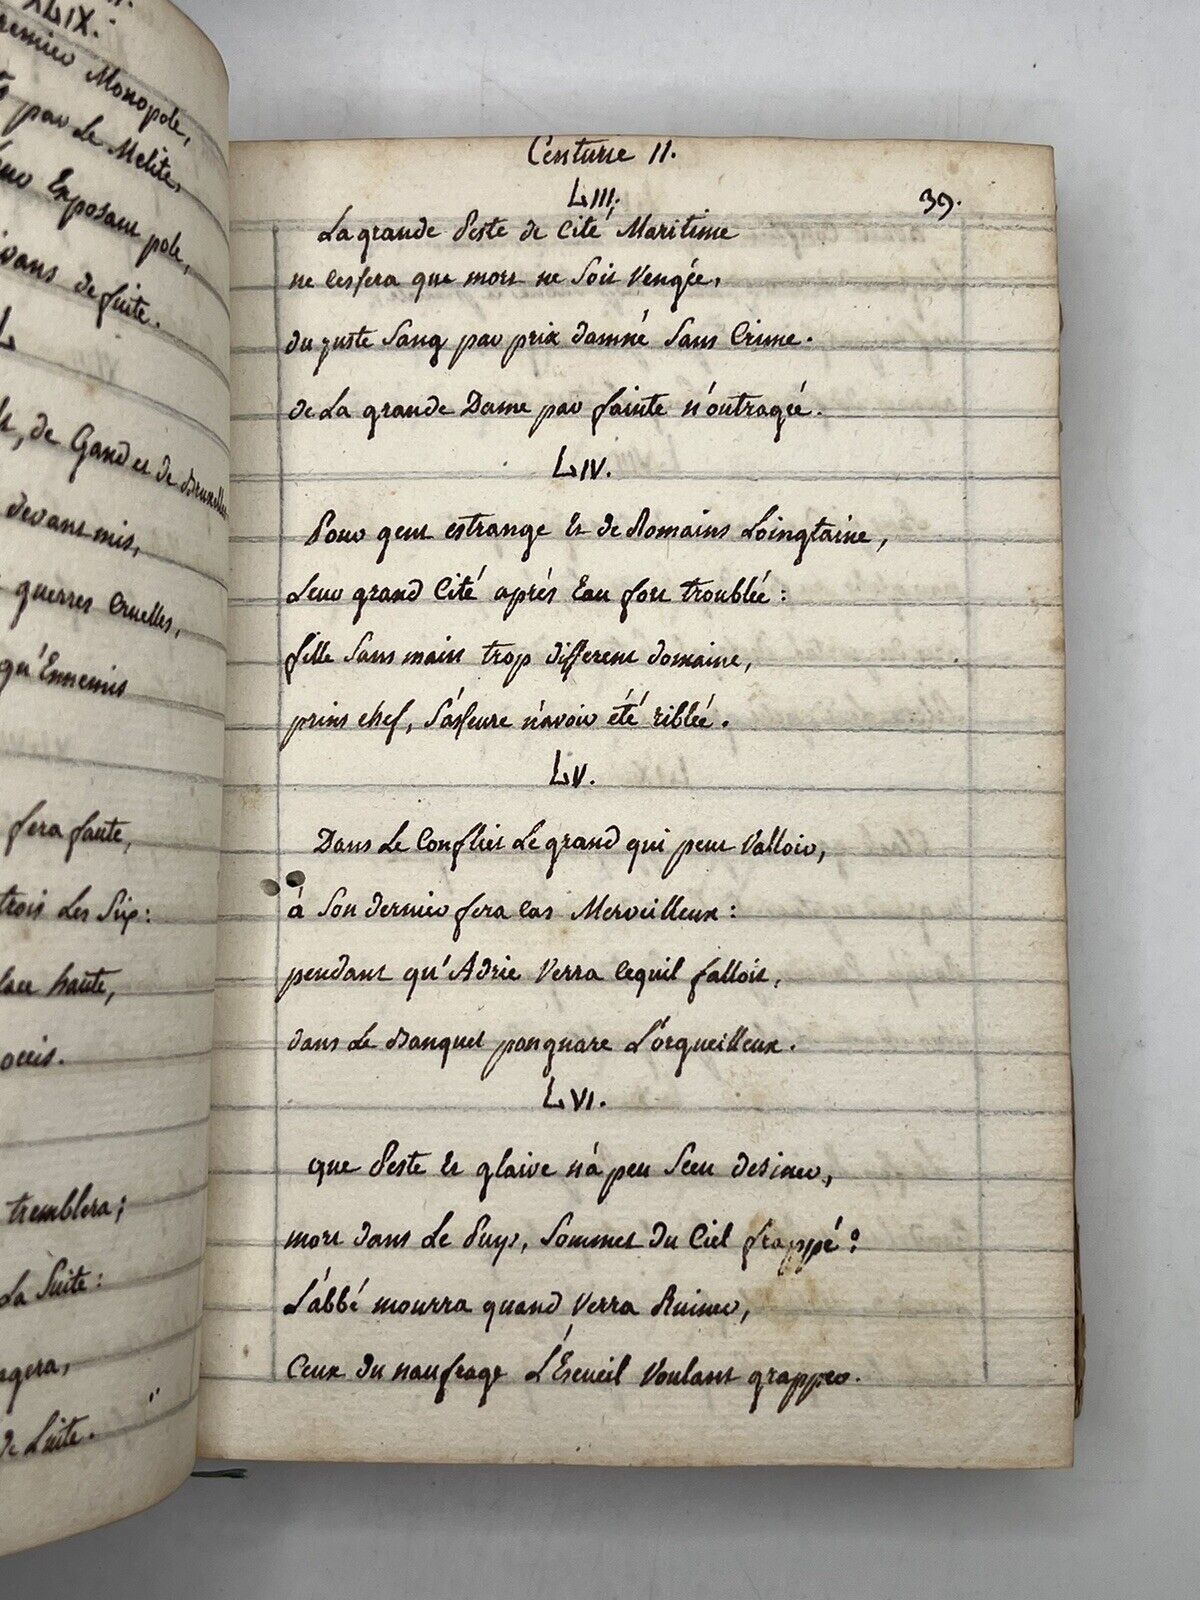 XLIX.
premier Monopole,
par Le Melite,
Exposant pole,
de fuite.
L
de Gand et de Bruxelles
devant mis,
guerres Cruelles,
qu'Ennemis
fera faute,
trois Les Six:
place haute,
occis.
tremblera;
La Suite:
de Luite.
Centurie II.
39.
LIII.
La grande Peste de Cité Maritime
ne cessera que mort ne Soit Vengée,
du juste Sang par prix damné Sans Crime.
de La grande Dame par fainte n'outragée.
LIV.
Pour gent estrange Et de Romains Loingtaine,
Leur grand Cité aprés Eau fort troublée:
fille Sans main trop different domaine,
prins chef, S'asseure n'avoir été riblée.
LV.
Dans Le Conflict Le grand qui peut Valloir,
à Son dernier fera Cas Merveilleux:
pendant qu'Adrie Verra Cequil falloit,
dans Le Banquet pongnare L'orgueilleux.
LVI.
que Peste Et glaive n'a peu Sceu definer,
mort dans Le Puys, Sommet du Ciel frappé:
L'abbé mourra quand Verra Ruiner,
Ceux du naufrage L'Escueil Voulant grapper.